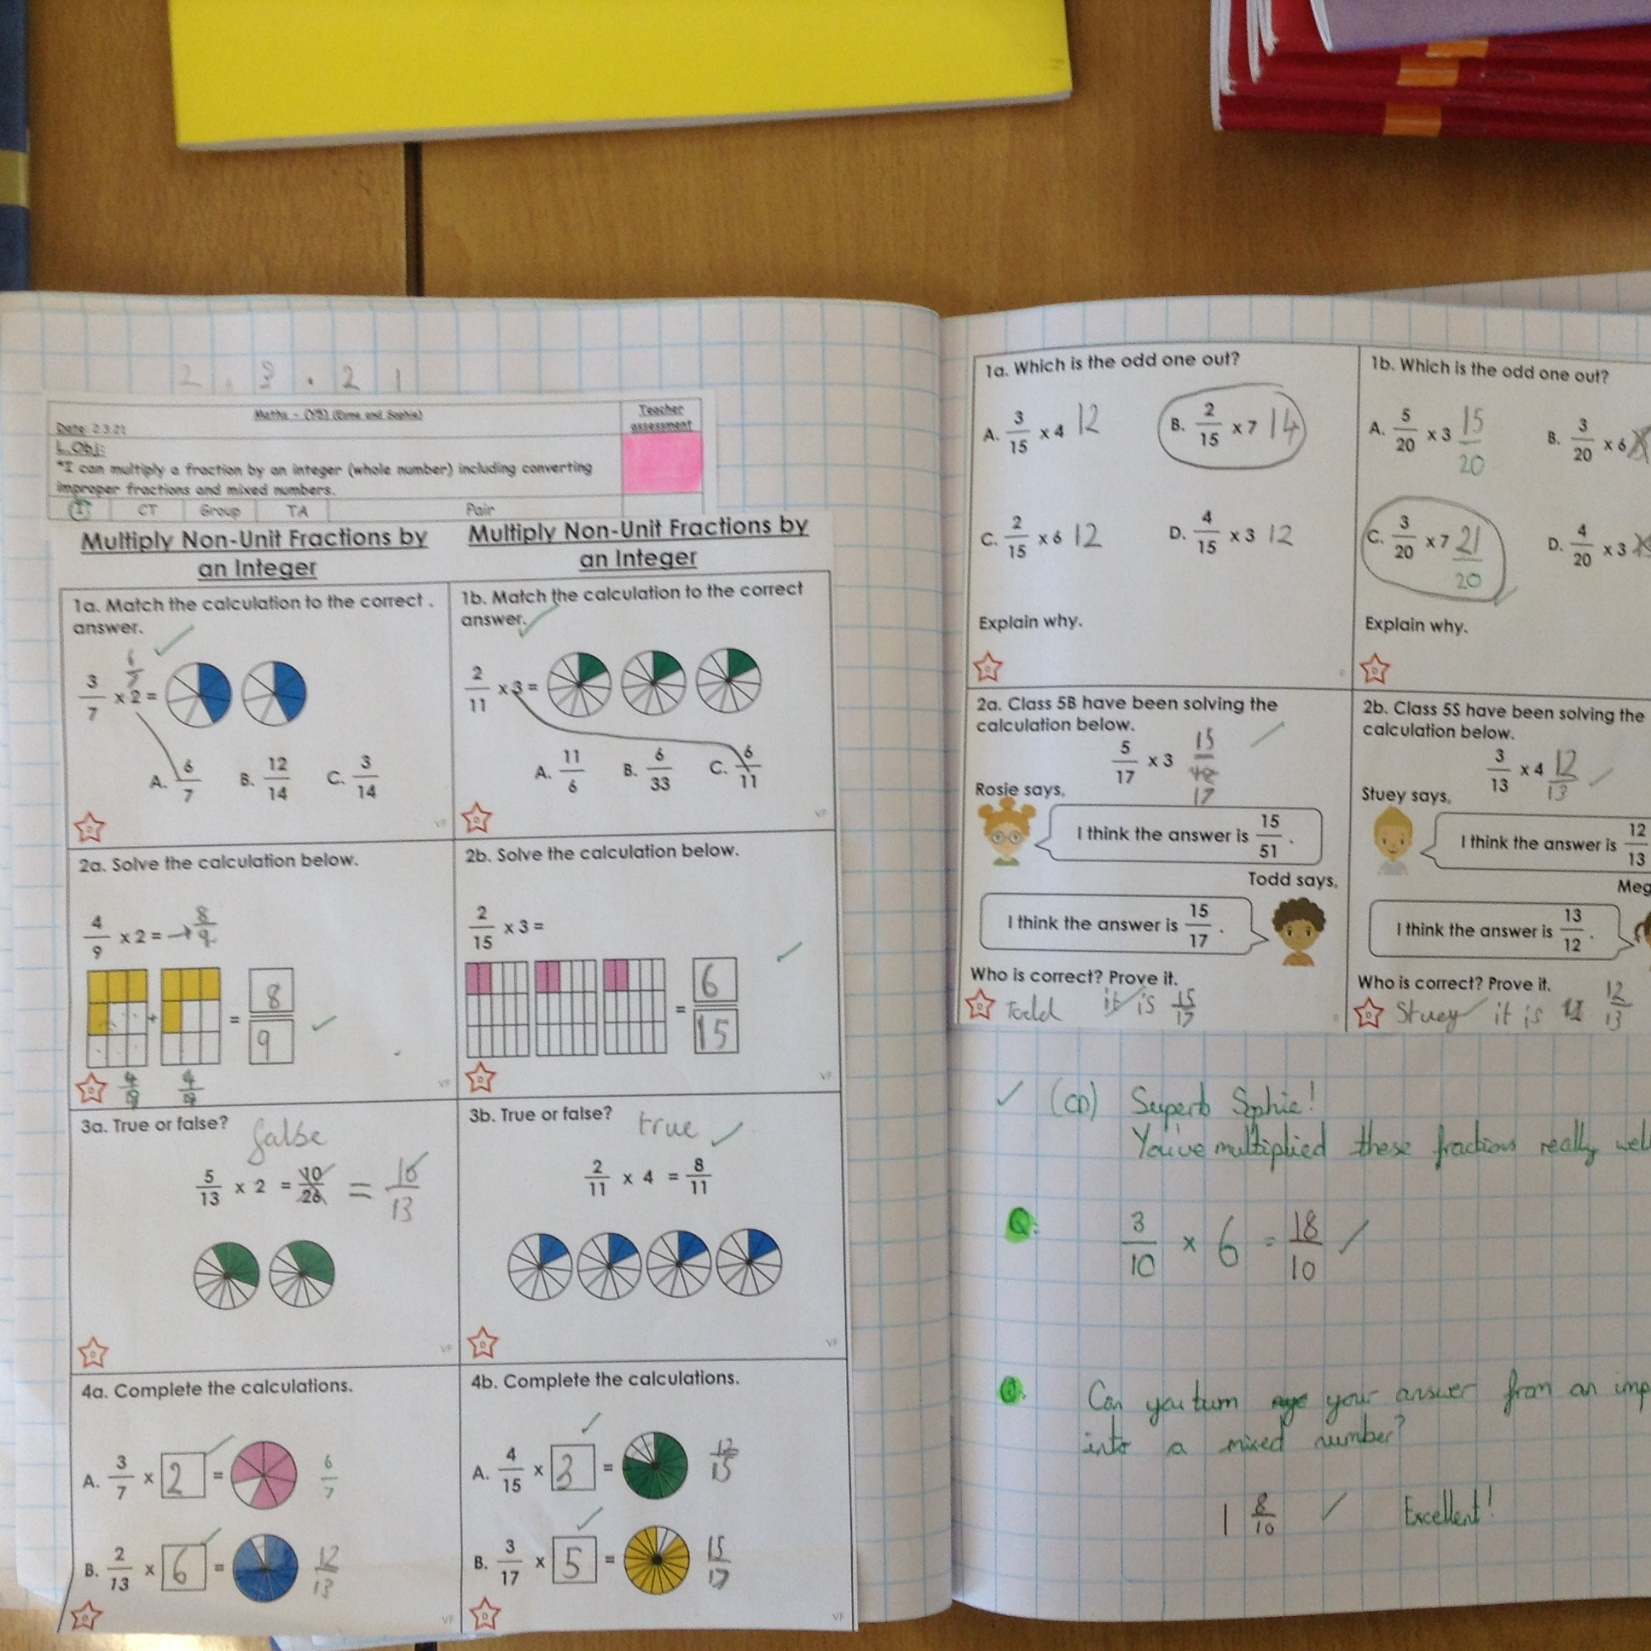 2.3.21
Maths - (Y5) (Esme and Sophie)
Teacher assessment
Date: 2.3.21
L.Obj:
*I can multiply a fraction by an integer (whole number) including converting
improper fractions and mixed numbers.
I CT Group TA Pair
Multiply Non-Unit Fractions by
an Integer
Multiply Non-Unit Fractions by
an Integer
1a. Match the calculation to the correct .
answer.
6/7
3/7 x 2 =
A. 6/7 B. 12/14 C. 3/14
VF
1b. Match the calculation to the correct
answer.
2/11 x 3 =
A. 11/6 B. 6/33 C. 6/11
VF
2a. Solve the calculation below.
4/9 x 2 = → 8/9
+ = 8/9
4/9 4/9
VF
2b. Solve the calculation below.
2/15 x 3 =
= 6/15
VF
3a. True or false? false
5/13 x 2 = 10/26 = 10/13
VF
3b. True or false? true
2/11 x 4 = 8/11
VF
4a. Complete the calculations.
A. 3/7 x 2 = 6/7
B. 2/13 x 6 = 12/13
VF
4b. Complete the calculations.
A. 4/15 x 3 = 12/15
B. 3/17 x 5 = 15/17
VF
1a. Which is the odd one out?
A. 3/15 x 4 12 B. 2/15 x 7 14
C. 2/15 x 6 12 D. 4/15 x 3 12
Explain why.
1b. Which is the odd one out?
A. 5/20 x 3 15/20 B. 3/20 x 6
C. 3/20 x 7 21/20 D. 4/20 x 3
Explain why.
2a. Class 5B have been solving the
calculation below.
5/17 x 3 15/17
Rosie says,
I think the answer is 15/51 .
Todd says,
I think the answer is 15/17 .
Who is correct? Prove it.
Todd it is 15/17
2b. Class 5S have been solving the
calculation below.
3/13 x 4 12/13
Stuey says,
I think the answer is 12/13
Meg
I think the answer is 13/12 .
Who is correct? Prove it.
Stuey it is 12/13
✓ (CD) Superb Sophie!
You've multiplied these fractions really well
Q: 3/10 x 6 = 18/10 ✓
Q: Can you turn your answer from an imp
into a mixed number?
1 8/10 ✓ Excellent!